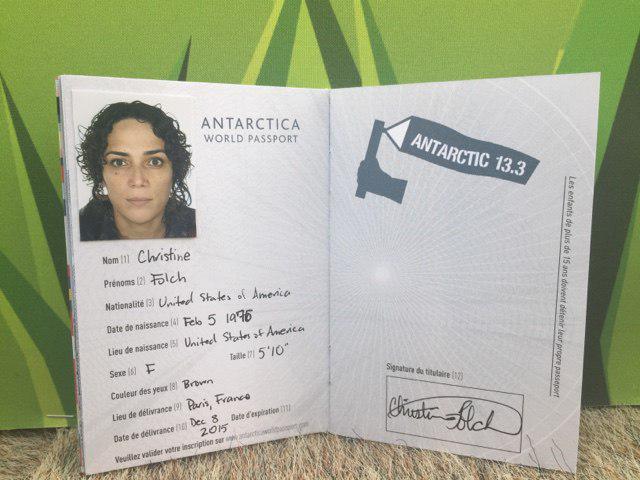 ANTARCTICA
WORLD PASSPORT
Nom (1) Christine
Prénoms (2) Folch
Nationalité (3) United States of America
Date de naissance (4) Feb 5 1976
Lieu de naissance (5) United States of America
Sexe (6) F Taille (7) 5'10"
Couleur des yeux (8) Brown
Lieu de délivrance (9) Paris, France
Date de délivrance (10) Dec 8 2015 Date d'expiration (11)
Veuillez valider votre inscription sur www.antarcticaworldpassport.com
ANTARCTIC 13.3
Les enfants de plus de 15 ans doivent détenir leur propre passeport
Signature du titulaire (12)
Christine Folch